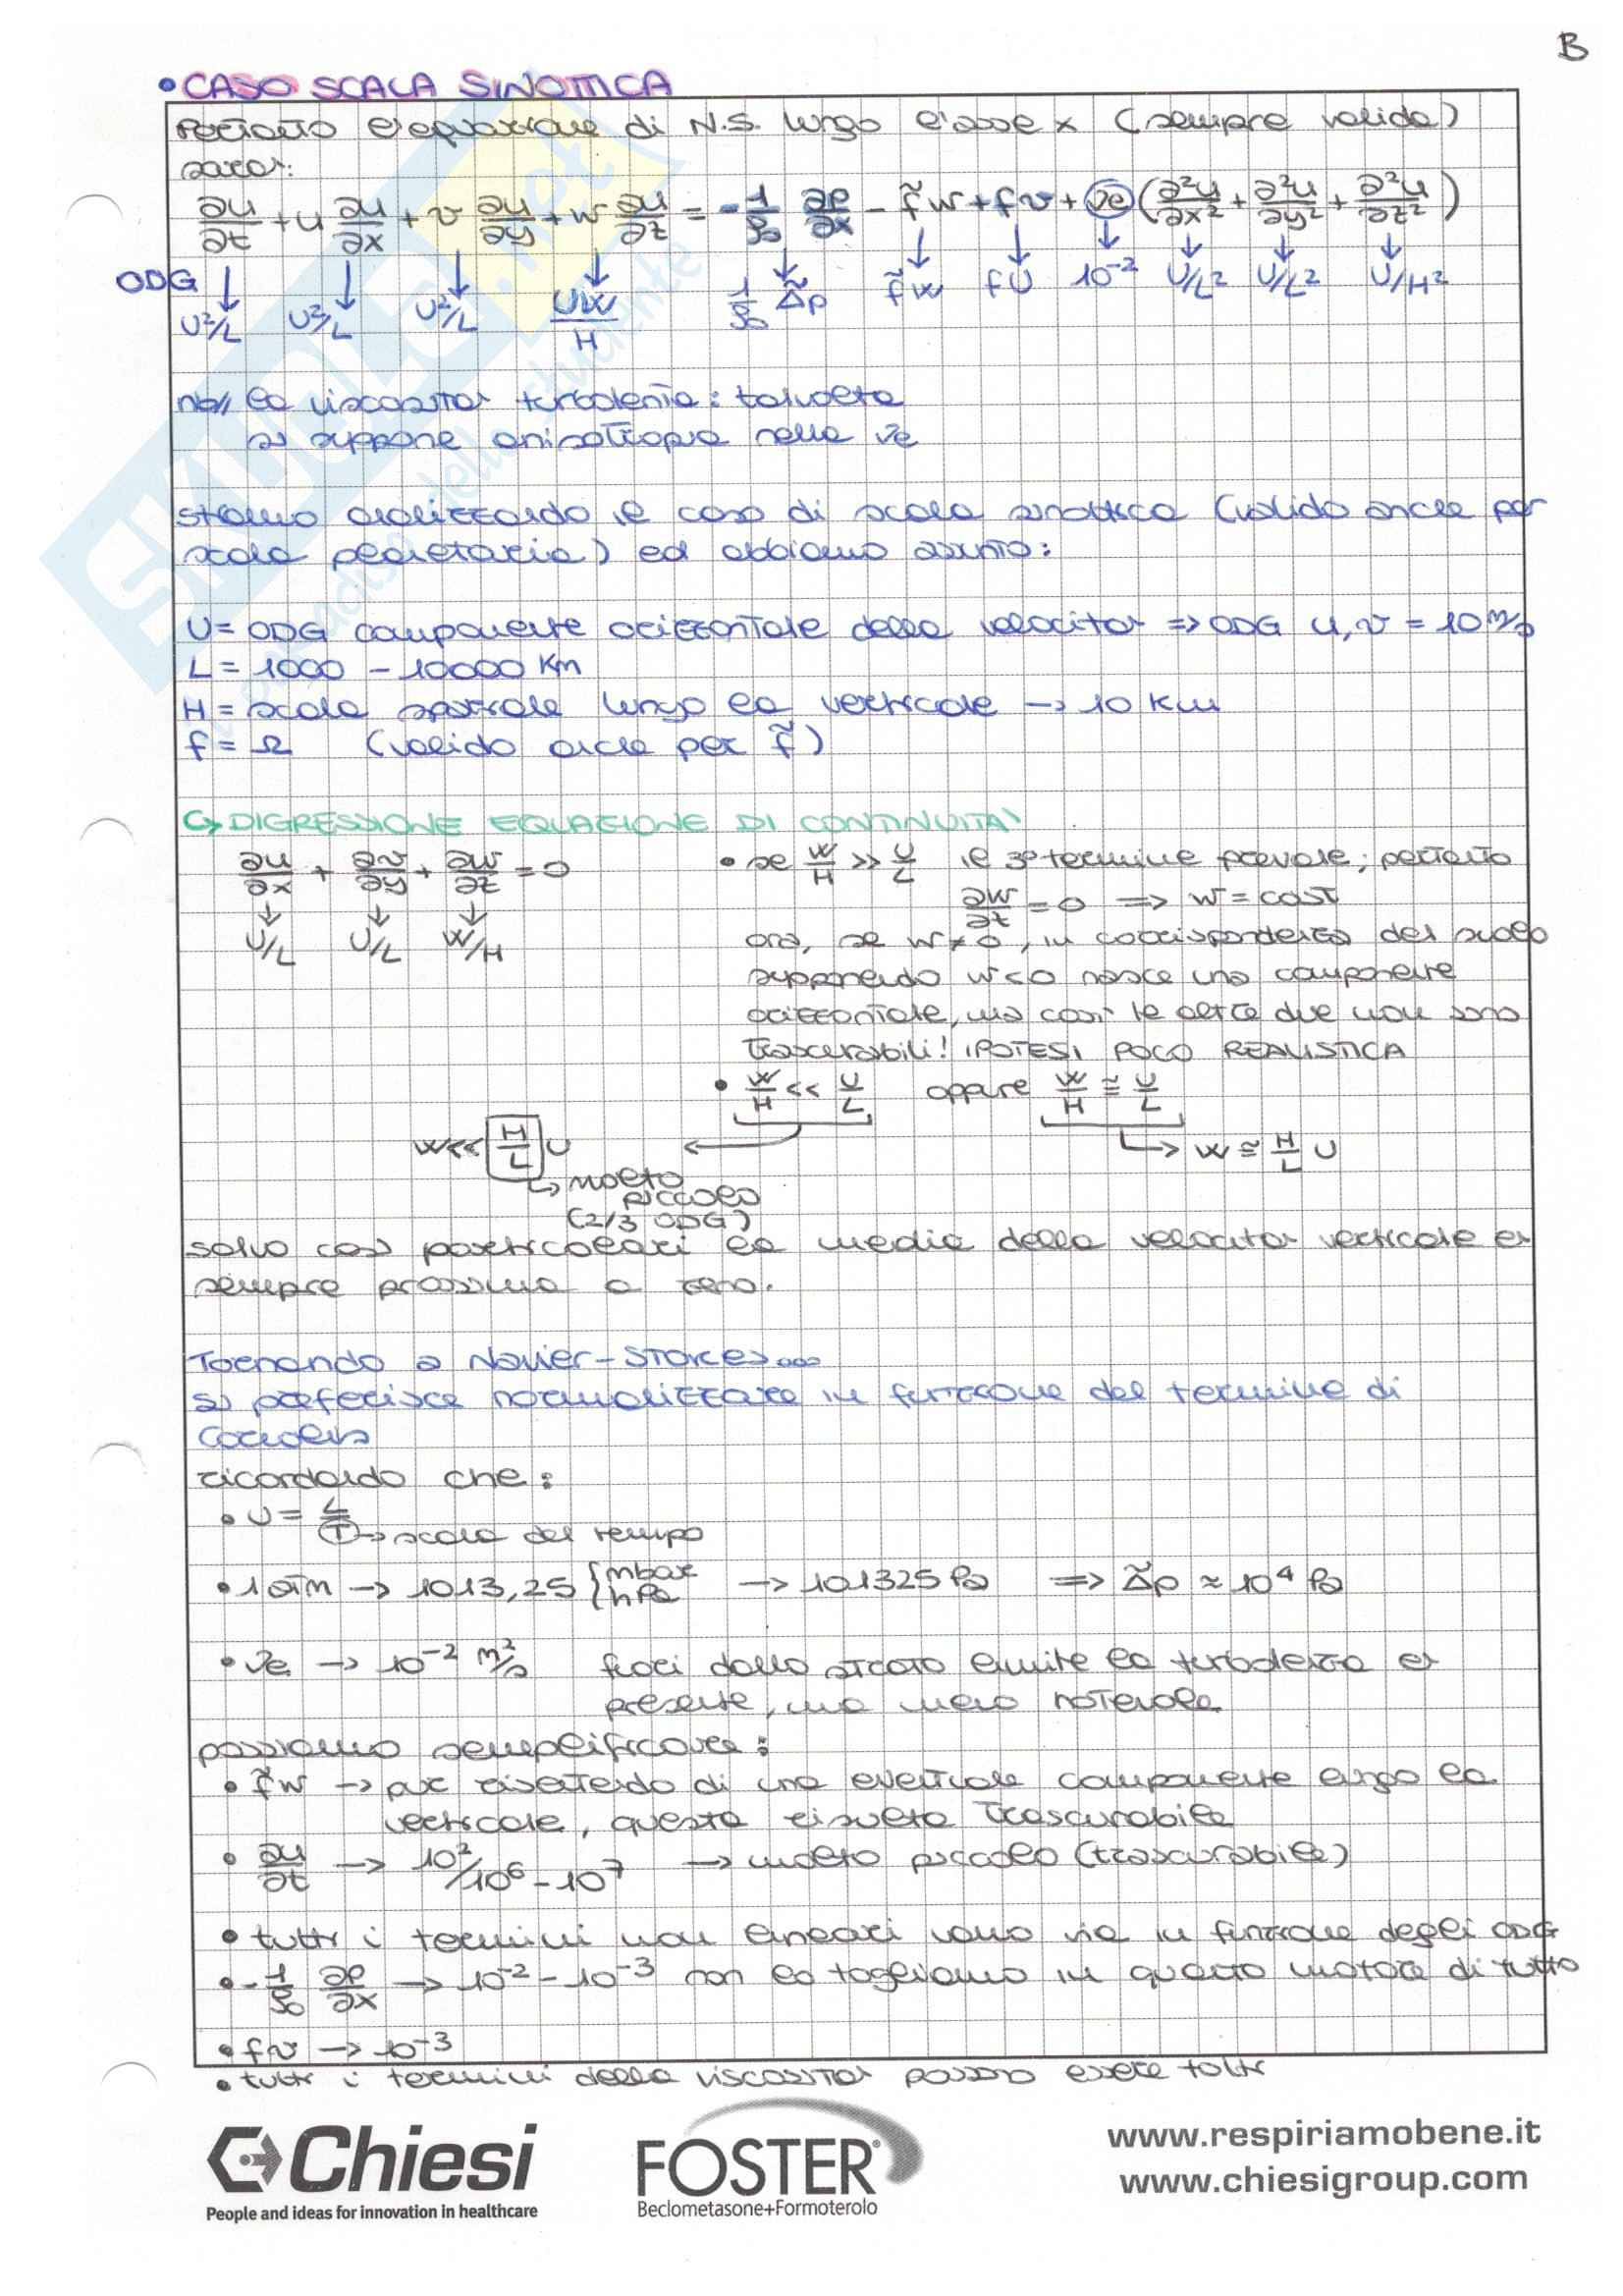 B
• CASO SCALA SINOTTICA
Pertanto l'equazione di N.S. lungo l'asse x (sempre valida)
sarà:
∂u/∂t + u ∂u/∂x + v ∂u/∂y + w ∂u/∂z = - 1/ρ₀ ∂p/∂x - f̃w + fv + νe (∂²u/∂x² + ∂²u/∂y² + ∂²u/∂z²)
ODG ↓ ↓ ↓ ↓ ↓ ↓ ↓ ↓ ↓ ↓ ↓
U²/L U²/L U²/L UW/H 1/ρ₀ Δ̃p f̃W fU 10⁻² U/L² U/L² U/H²
nb// la viscosità turbolenta: talvolta
si suppone anisotropia nella νe
stiamo analizzando il caso di scala sinottica (valido anche per
scala planetaria) ed abbiamo assunto:
U = ODG componente orizzontale della velocità => ODG u, v = 10 m/s
L = 1000 - 10000 Km
H = scala spaziale lungo la verticale → 10 Km
f = Ω (valido anche per f̃)
↳ DIGRESSIONE EQUAZIONE DI CONTINUITA'
∂u/∂x + ∂v/∂y + ∂w/∂z = 0
↓ ↓ ↓
U/L U/L W/H
• se W/H >> U/L il 3° termine prevale; pertanto
∂w/∂z = 0 => w = cost
ora, se w ≠ 0, in corrispondenza del suolo
supponendo w<0 nasce una componente
orizzontale, ma così le altre due non sono
trascurabili! IPOTESI POCO REALISTICA
• W/H << U/L oppure W/H ≅ U/L
W << H/L U → W ≅ H/L U
↳ molto
piccolo
(2/3 ODG)
salvo casi particolari la media della velocità verticale è
sempre prossima a zero.
Tornando a Navier-Stokes...
si preferisce normalizzare in funzione del termine di
Coriolis
ricordando che:
• U = L/T → scala del tempo
• 1 atm → 1013,25 { mbar hPa → 101325 Pa => Δ̃p ≈ 10⁴ Pa
• νe → 10⁻² m²/s fuori dallo strato limite la turbolenza è
presente, ma meno notevole.
possiamo semplificare:
• f̃w → pur risentendo di una eventuale componente lungo la
verticale, questa risulta trascurabile
• ∂u/∂t → 10²/10⁶ - 10⁷ → molto piccolo (trascurabile)
• tutti i termini non lineari vanno via in funzione degli ODG
• - 1/ρ₀ ∂p/∂x → 10⁻² - 10⁻³ non lo togliamo in quanto motore di tutto
• fv → 10⁻³
• tutti i termini della viscosità possono essere tolti
Chiesi
People and ideas for innovation in healthcare
FOSTER®
Beclometasone+Formoterolo
www.respiriamobene.it
www.chiesigroup.com